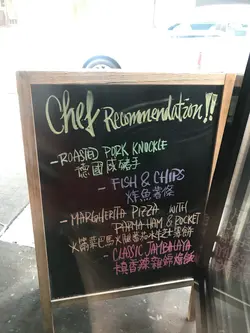 Chef Recommendation!!
- ROASTED PORK KNUCKLE
德國咸豬手
- FISH & CHIPS
炸魚薯條
- MARGHERITA PIZZA WITH
PARMA HAM & ROCKET
火箭菜巴馬火腿蕃茄水牛芝士薄餅
- CLASSIC JAMBALAYA
燴飯